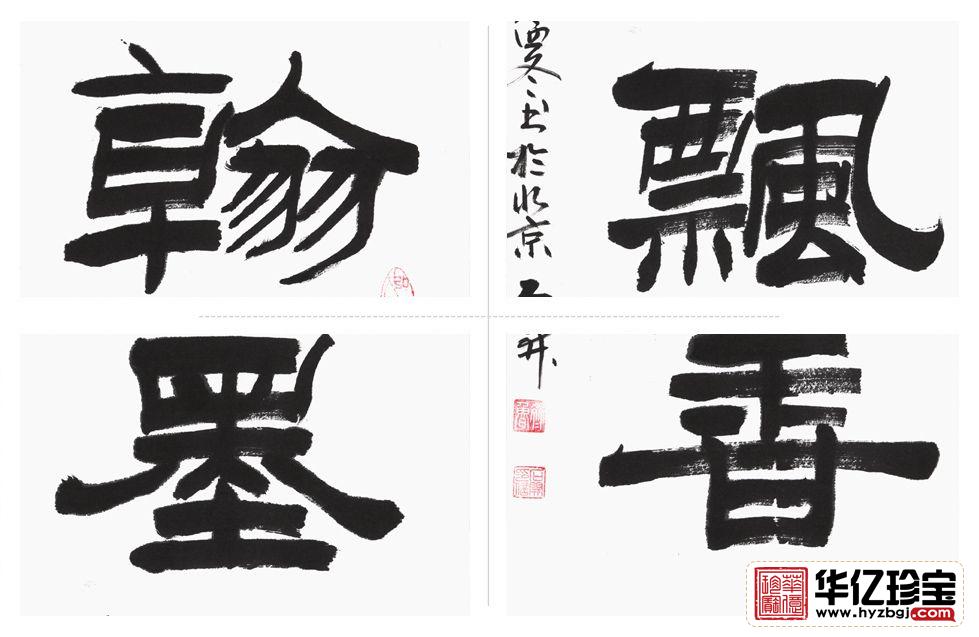 翰
飄
墨
香
夏冬玉於北京
华亿珍宝
www.hyzbgj.com